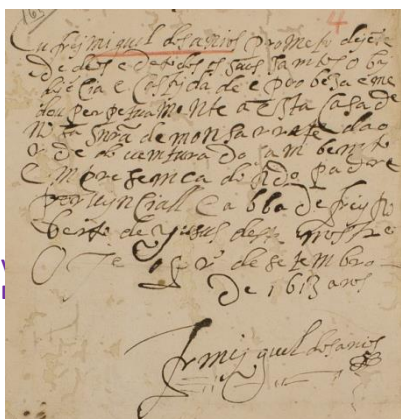 163
4
Eu frei miguel dos anios prometo diante
de deos e de todos os seus santos obe
diencia e castidade e pobreza e me
dou perpetuamente a esta casa de
nosa snra de monsarrate da or
de do aventurado sam bento
em presenca do padre
provincial e abbade frei
berto de Jesus deste mostro
Oje de setembro
de 1613 anos
fr miguel dos anios